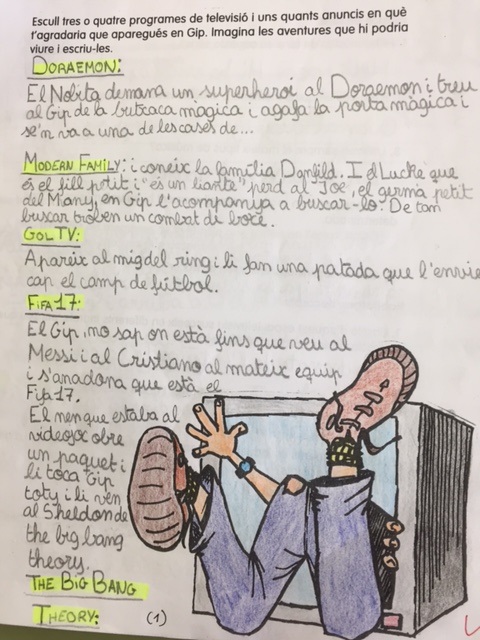 Escull tres o quatre programes de televisió i uns quants anuncis en què
t'agradaria que aparegués en Gip. Imagina les aventures que hi podria
viure i escriu-les.
DORAEMON:
El Nobita demana un superheroi al Doraemon i treu
al Gip de la butxaca màgica i agafa la porta màgica i
se'n va a una de les cases de...
MODERN FAMILY: i coneix la família Danfild. I el Lucke que
és el fill petit i "és un liante" perd al Joe, el germà petit
del Many, en Gip l'acompanya a buscar-lo. De tan
buscar troben un combat di boce.
GOL TV:
Apareix al mig del ring i li fan una patada que l'envie
cap el camp de fútbol.
FIFA 17:
El Gip, no sap on està fins que veu al
Messi i al Cristiano al mateix equip
i s'anadona que està el
Fifa 17.
El nen que estaba al
videojoc obre
un paquet i
li toca Gip
toty i li ven
al Sheldon de
the big bang
theory.
THE BIG BANG
THEORY: (1)